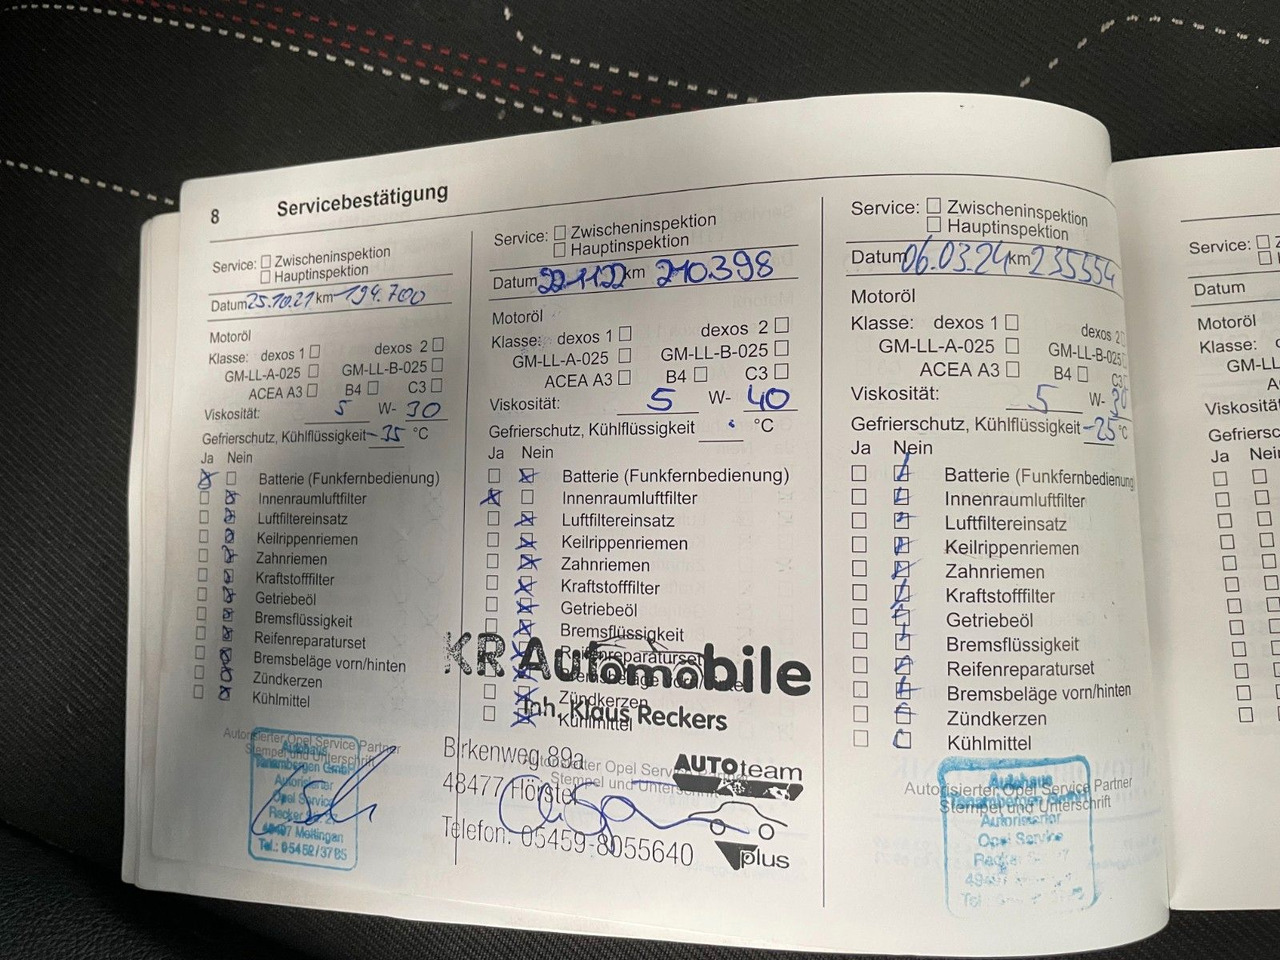 8 Servicebestätigung
Service: Zwischeninspektion
Hauptinspektion
Datum 25.10.21 km 194.700
Motoröl
Klasse: dexos 1 dexos 2
GM-LL-A-025 GM-LL-B-025
ACEA A3 B4 C3
Viskosität: 5 W- 30
Gefrierschutz, Kühlflüssigkeit -35 °C
Ja Nein
Batterie (Funkfernbedienung)
Innenraumluftfilter
Luftfiltereinsatz
Keilrippenriemen
Zahnriemen
Kraftstofffilter
Getriebeöl
Bremsflüssigkeit
Reifenreparaturset
Bremsbeläge vorn/hinten
Zündkerzen
Kühlmittel
Autorisierter Opel Service Partner
Stempel und Unterschrift
Autohaus
GmbH
Autorisierter
Opel Service
Tel.: 05452/3785
Service: Zwischeninspektion
Hauptinspektion
Datum 22.11.22 km 210.398
Motoröl
Klasse: dexos 1 dexos 2
GM-LL-A-025 GM-LL-B-025
ACEA A3 B4 C3
Viskosität: 5 W- 40
Gefrierschutz, Kühlflüssigkeit °C
Ja Nein
Batterie (Funkfernbedienung)
Innenraumluftfilter
Luftfiltereinsatz
Keilrippenriemen
Zahnriemen
Kraftstofffilter
Getriebeöl
Bremsflüssigkeit
Reifenreparaturset
Zündkerzen
Kühlmittel
KR Automobile
Inh. Klaus Reckers
Birkenweg 89a
48477 Hörstel
Telefon: 05459-8055640
AUTOteam
plus
Service: Zwischeninspektion
Hauptinspektion
Datum 06.03.24 km 235554
Motoröl
Klasse: dexos 1 dexos 2
GM-LL-A-025 GM-LL-B-025
ACEA A3 B4 C3
Viskosität: 5 W- 30
Gefrierschutz, Kühlflüssigkeit -25 °C
Ja Nein
Batterie (Funkfernbedienung)
Innenraumluftfilter
Luftfiltereinsatz
Keilrippenriemen
Zahnriemen
Kraftstofffilter
Getriebeöl
Bremsflüssigkeit
Reifenreparaturset
Bremsbeläge vorn/hinten
Zündkerzen
Kühlmittel
Autorisierter Opel Service Partner
Stempel und Unterschrift
Autohaus
Autorisierter
Opel Service
Service:
Datum
Motoröl
Klasse:
GM-LL
Ja